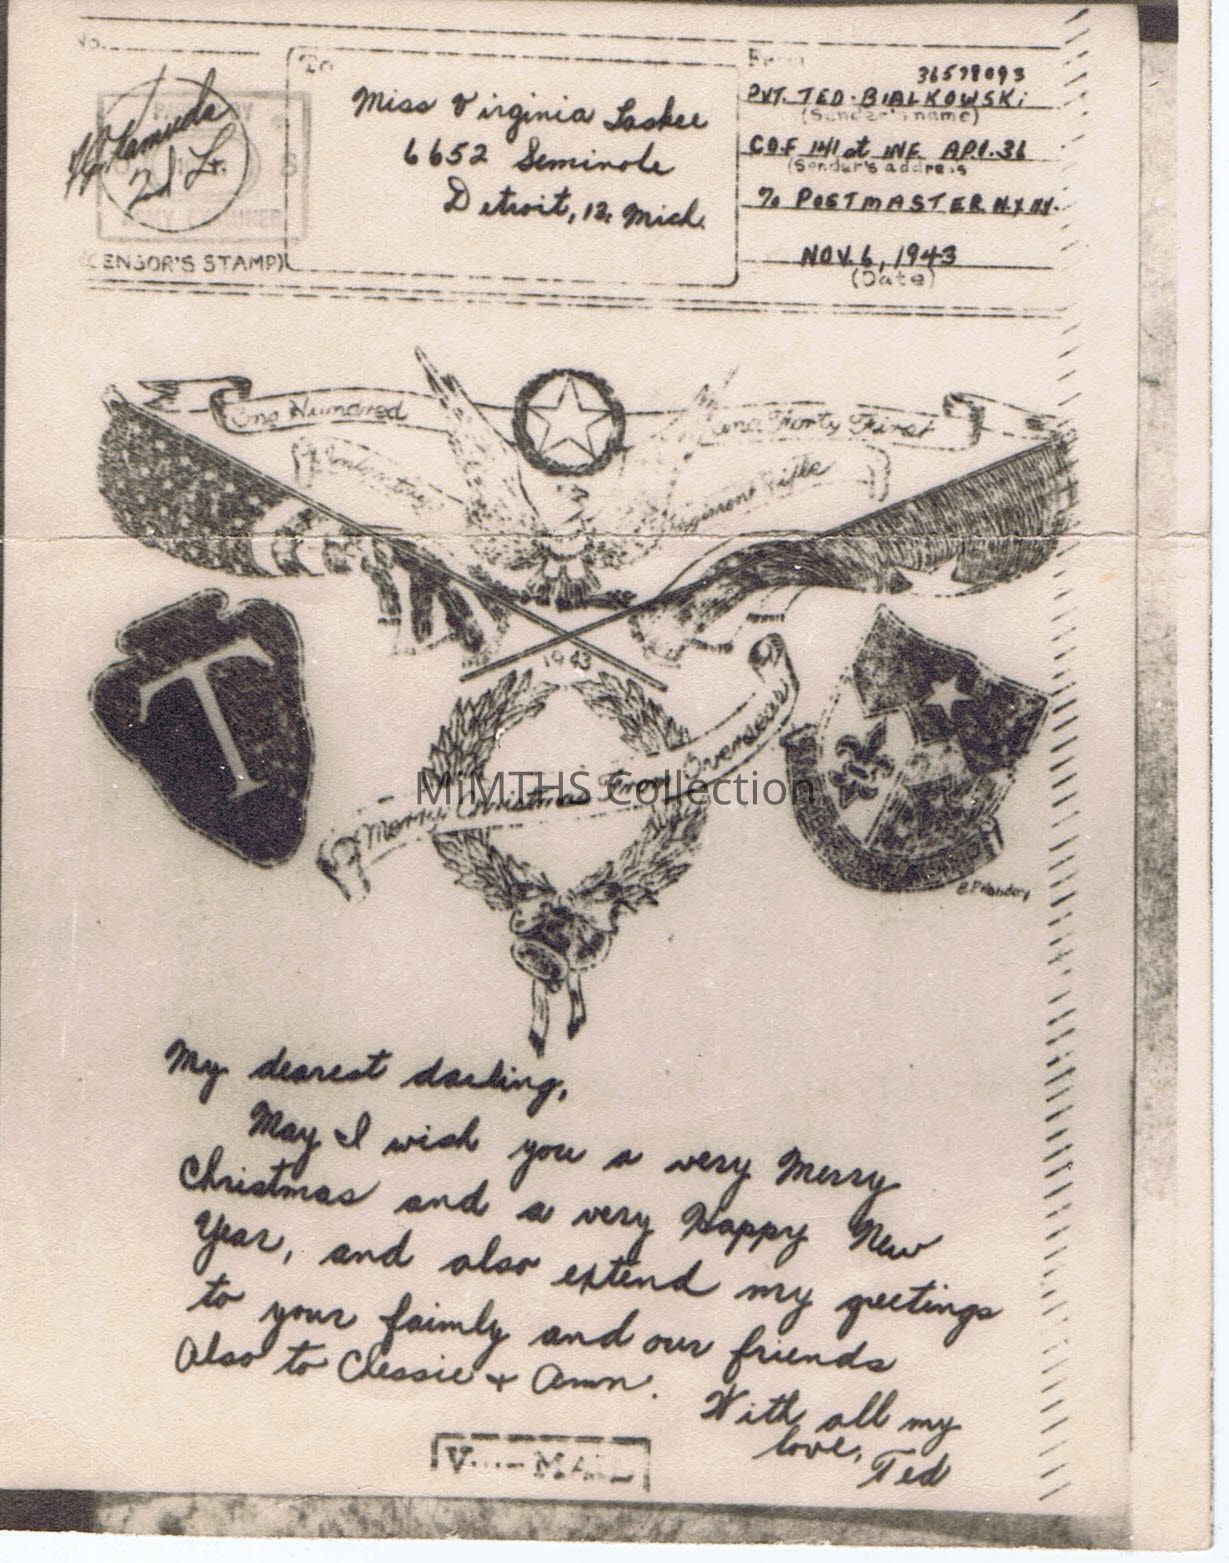 No.
To
From
36578093
Miss Virginia Laskee
PVT. TED. BIALKOWSKI
(Sender's name)
6652 Seminole
CO.F 141 st INF. A.P.O. 36
(Sender's address
Detroit, 12, Mich.
% POSTMASTER N.Y. N.Y.
2d Lt.
PASSED BY
ARMY EXAMINER
(CENSOR'S STAMP)
NOV. 6, 1943
(Date)
One Hundred and Forty First
Infantry Regiment Rifle
1943
T
Merry Christmas From Overseas
MiMTHS Collection
My dearest darling,
May I wish you a very Merry
Christmas and a very Happy New
Year, and also extend my greetings
to your faimly and our friends
Also to Chessie + Ann.
With all my
love,
Ted
V-MAIL